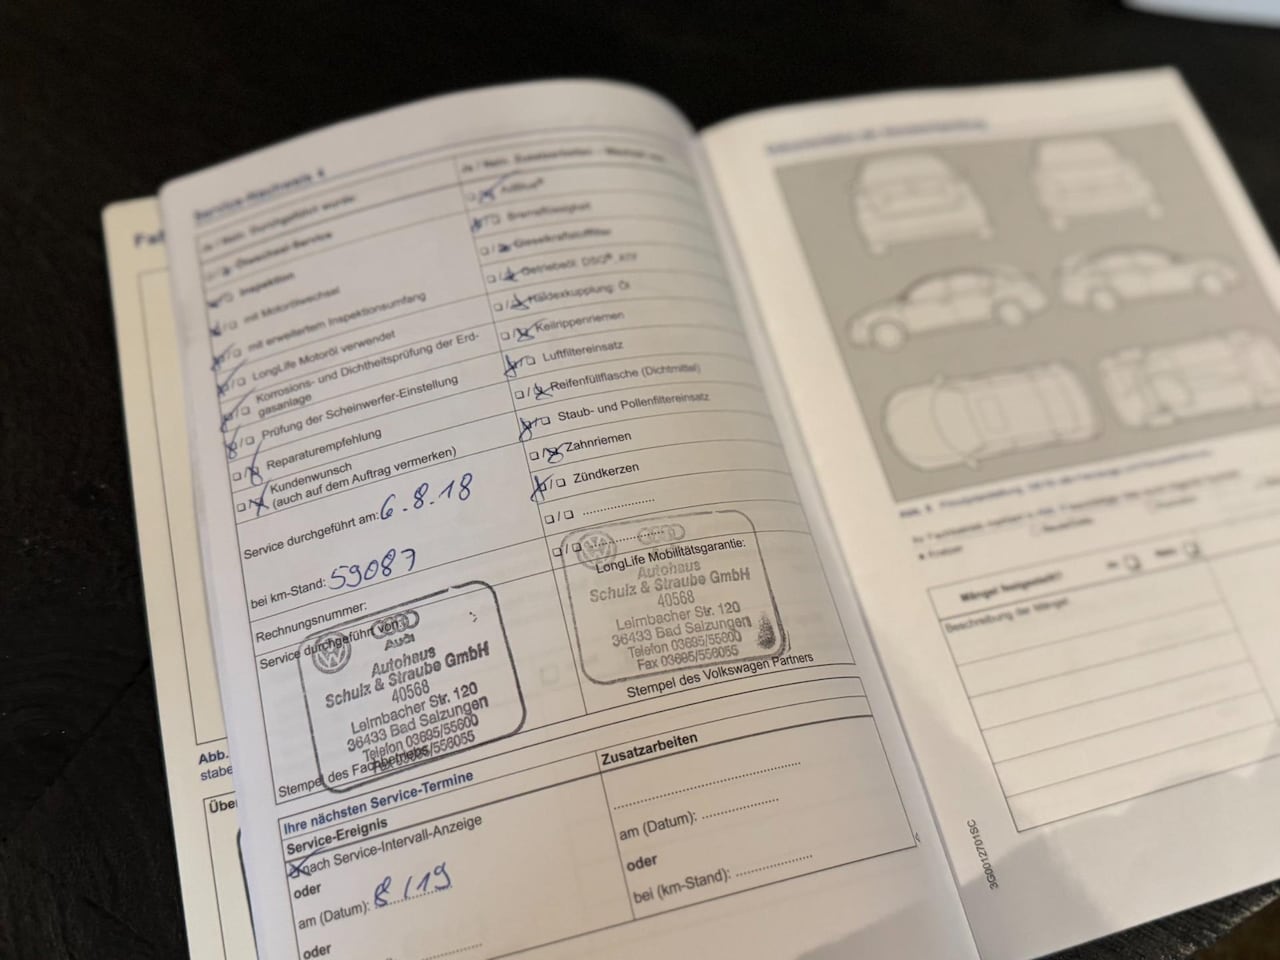 Service-Nachweis 4
Ja / Nein: Durchgeführt wurde:
Ölwechsel-Service
Inspektion
mit Motorölwechsel
mit erweitertem Inspektionsumfang
LongLife Motoröl verwendet
Korrosions- und Dichtheitsprüfung der Erd-
gasanlage
Prüfung der Scheinwerfer-Einstellung
Reparaturempfehlung
Kundenwunsch
(auch auf dem Auftrag vermerken)
Service durchgeführt am: 6.8.18
bei km-Stand: 59087
Rechnungsnummer:
Service durchgeführt von:
Audi
Autohaus
Schulz & Straube GmbH
40568
Leimbacher Str. 120
36433 Bad Salzungen
Telefon 03695/55600
Fax 03695/556055
Stempel des Fachbetriebs
Ja / Nein: Zusatzarbeiten
AdBlue®
Bremsflüssigkeit
Dieselkraftstofffilter
Getriebeöl: DSG®, ATF
Haldexkupplung: Öl
Keilrippenriemen
Luftfiltereinsatz
Reifenfüllflasche (Dichtmittel)
Staub- und Pollenfiltereinsatz
Zahnriemen
Zündkerzen
LongLife Mobilitätsgarantie:
Autohaus
Schulz & Straube GmbH
40568
Leimbacher Str. 120
36433 Bad Salzungen
Telefon 03695/55600
Fax 03695/556055
Stempel des Volkswagen Partners
Ihre nächsten Service-Termine
Service-Ereignis
nach Service-Intervall-Anzeige
oder
am (Datum): 8/19
oder
Zusatzarbeiten
am (Datum):
oder
bei (km-Stand):
Abb.
stabe
Über
Mängel festgestellt?
Beschreibung der Mängel
3G0012701SC